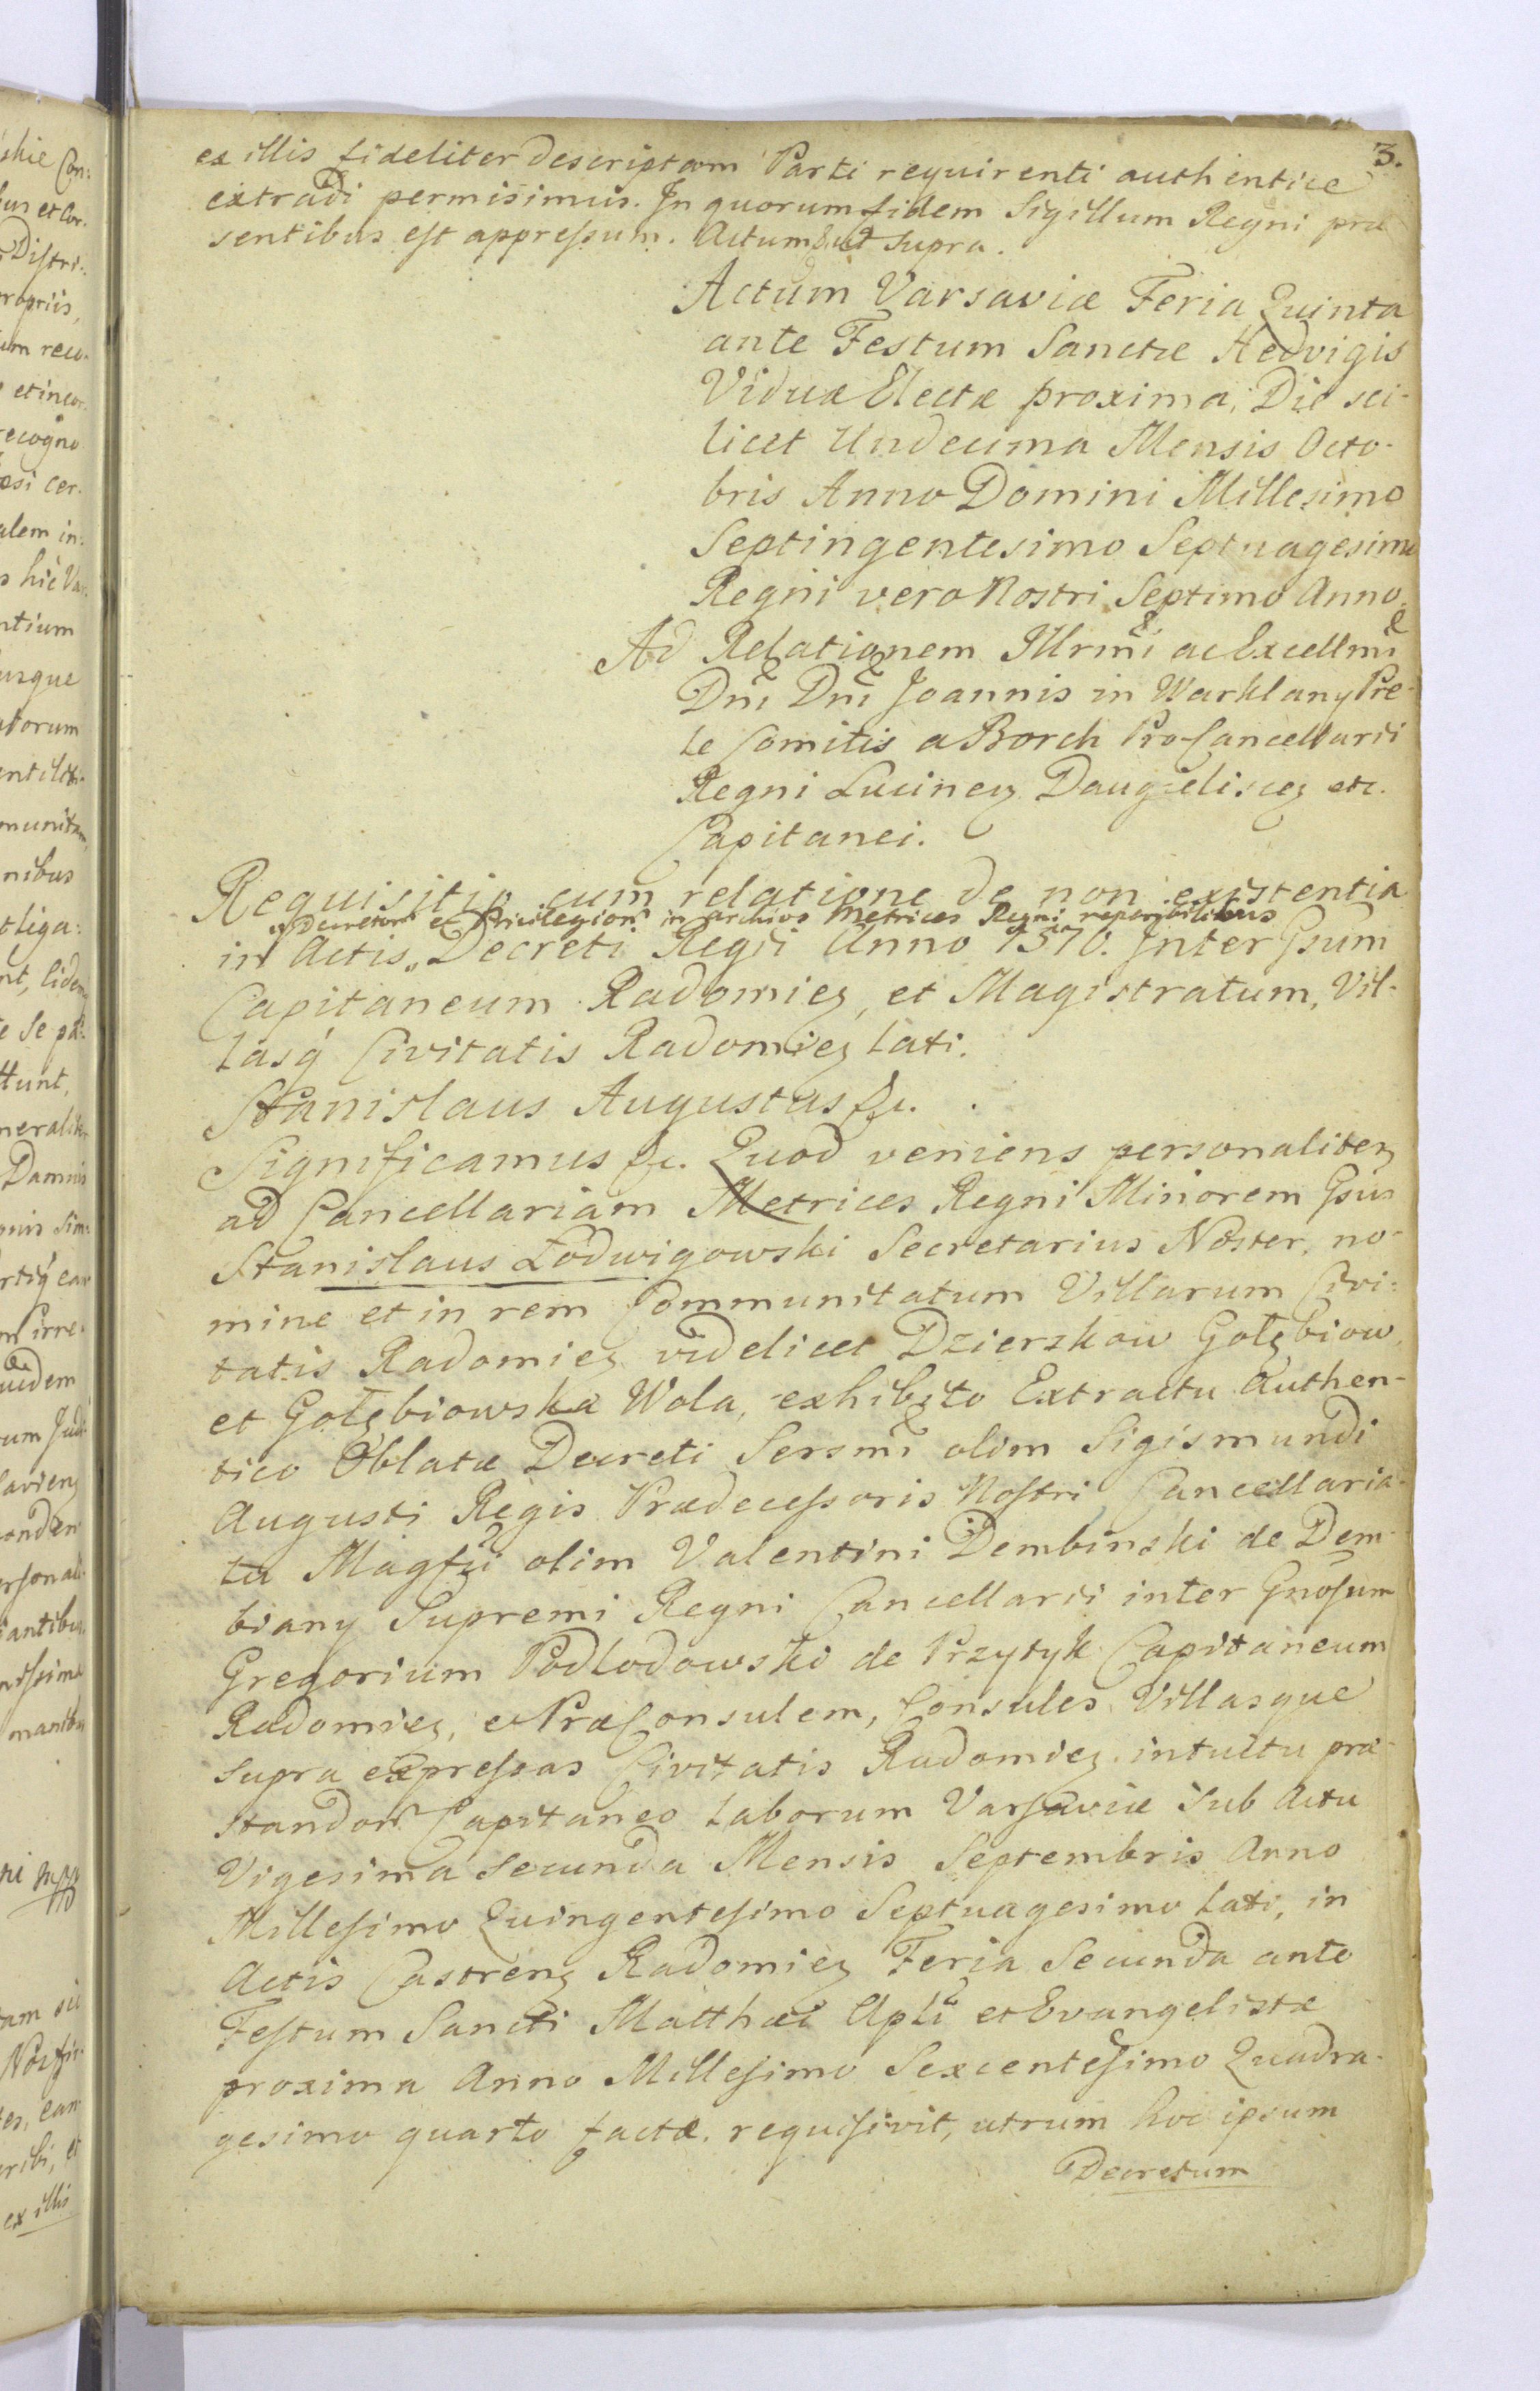 3.
ex illis fideliter descriptam Parti requirenti authentice
extradi permisimus. In quorum fidem Sigillum Regni præ
sentibus est appressum. Actum ut supra.
Actum Varsaviæ Feria Quinta
ante Festum Sanctæ Hedvigis
Viduæ Electæ proxima, Die sci-
licet Undecima Mensis Octo-
bris Anno Domini Millesimo
Septingentesimo Septuagesimo
Regni vero Nostri Septimo Anno.
Ad Relationem Illrmi ac Excellmi
Dni Dni Joannis in Warklany Pre-
le Comitis a Borch Pro-Cancellarii
Regni Lucinen Daugieliscen etc.
Capitanei.
Requisitio cum relatione de non existentia
Decretorum et Privilegiorum in archivo Metrices Regni reperibilibus
in Actis Decreti Regii Anno 1570. Inter Gsum
Capitaneum Radomien, et Magistratum, Vil-
lasq Civitatis Radomien lati.
Stanislaus Augustus &c.
Significamus &c. Quod veniens personaliter
ad Cancellariam Metrices Regni Minorem Gsus
Stanislaus Lodwigowski Secretarius Noster, no-
mine et in rem Communitatum Villarum Civi-
tatis Radomien videlicet Dzierzkow Gołębiow,
et Gołębiowska Wola, exhibito Extractu Authen-
tico Oblatæ Decreti Sersmi olim Sigismundi
Augusti Regis Prædecessoris Nostri Cancellaria-
tu Magfci olim Valentini Dembinski de Dem-
biany Supremi Regni Cancellarii inter Gnosum
Gregorium Podlodowski de Przytyk Capitaneum
Radomien, et PræConsulem, Consules Villasque
supra expressas Civitatis Radomien intuitu præ-
standor Capitaneo laborum Varsaviæ sub Actu
Vigesima secunda Mensis Septembris Anno
Millesimo Quingentesimo Septuagesimo lati, in
Actis Castren Radomien Feria Secunda ante
Festum Sancti Matthæi Apli et Evangelistæ
proxima Anno Millesimo Sexcentesimo Quadra-
gesimo quarto factæ. requisivit, utrum hoc ipsum
Decretum